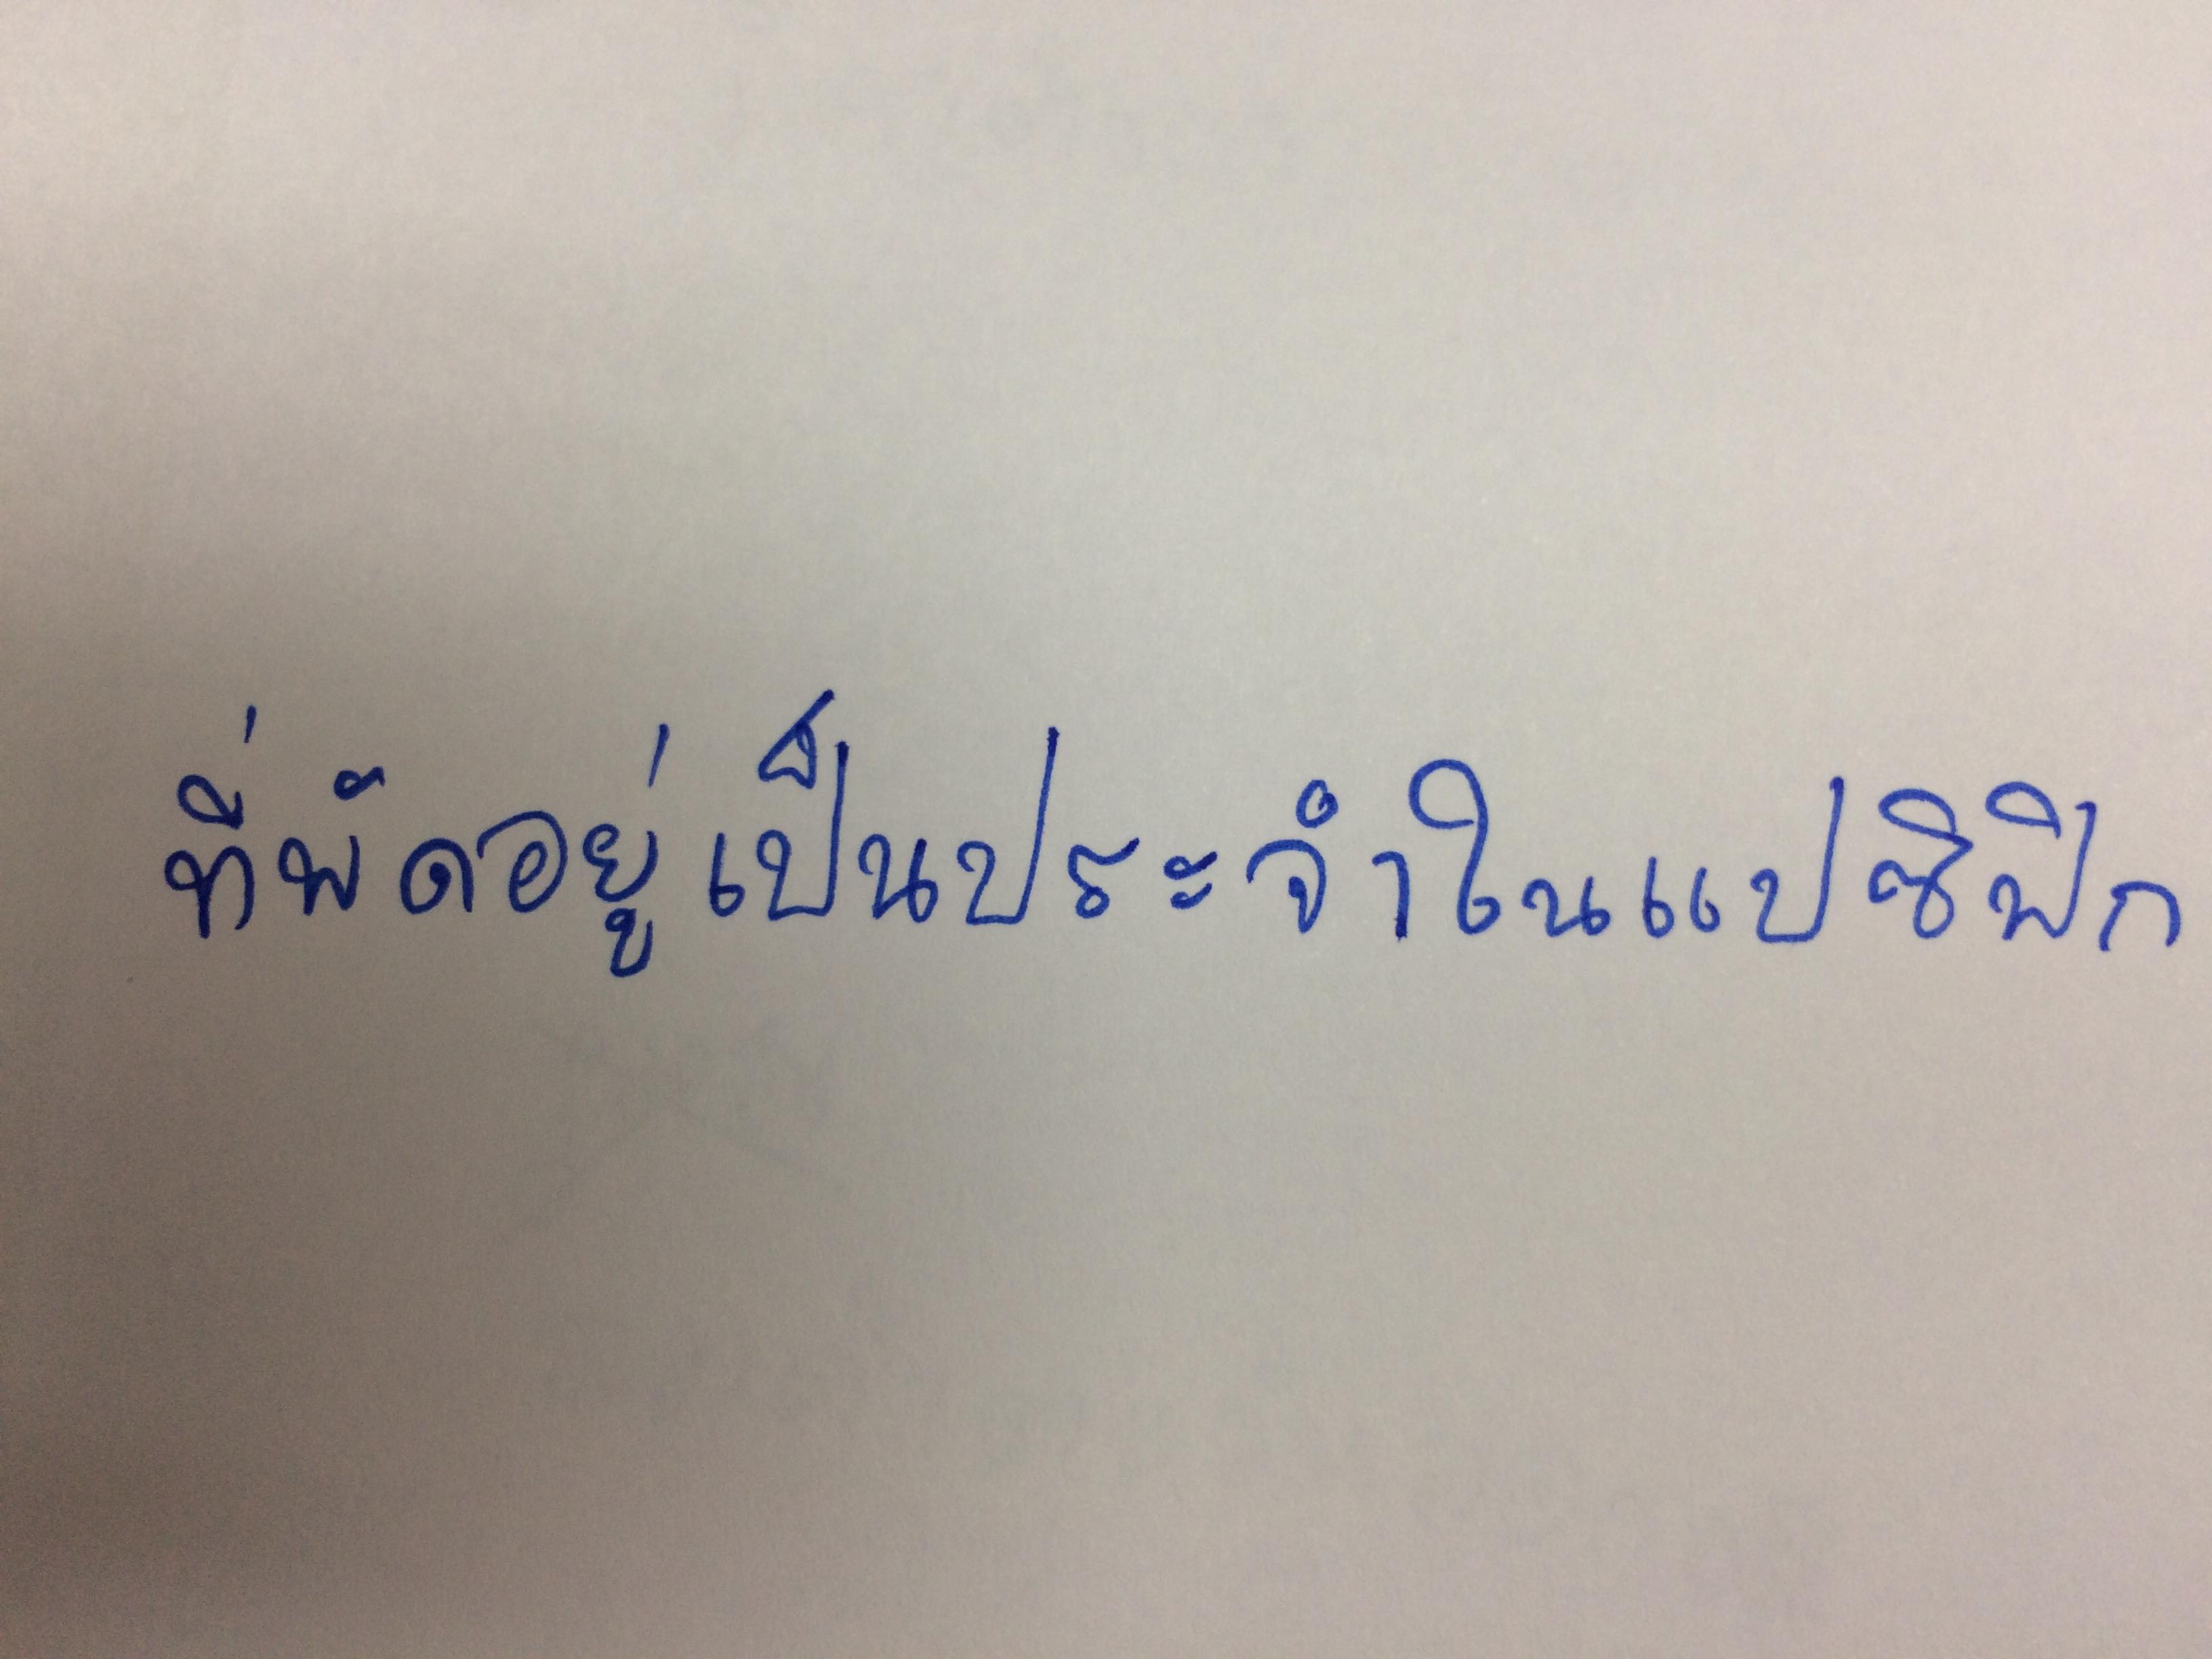 ที่พัดอยู่เป็นประจำในแปซิฟิก